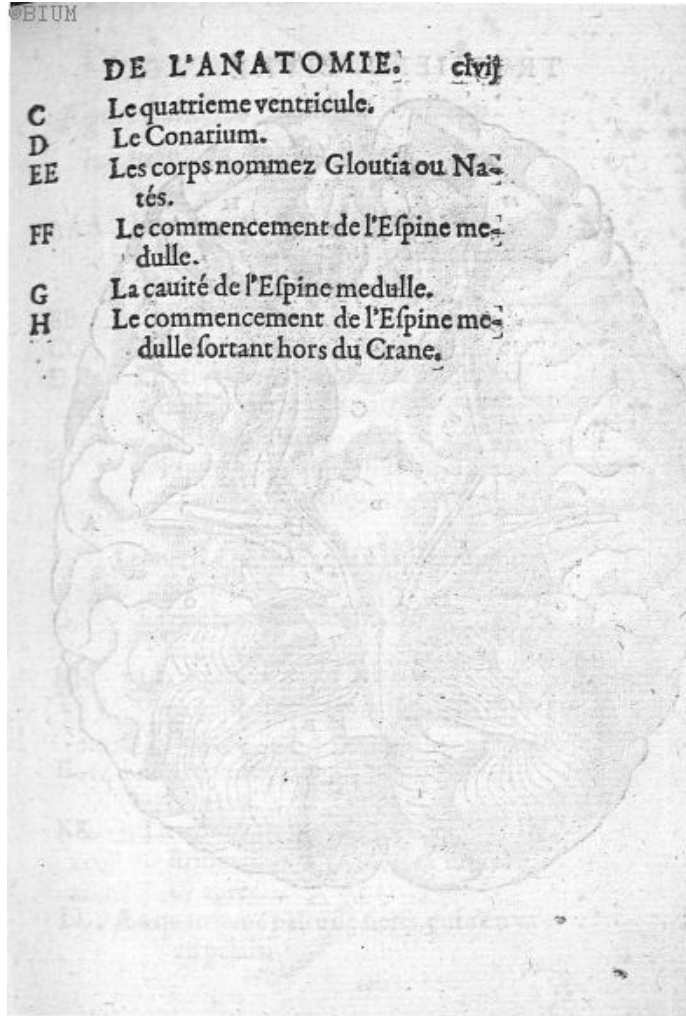 ©BIUM
DE L'ANATOMIE. clvij
C Le quatrieme ventricule.
D Le Conarium.
EE Les corps nommez Gloutia ou Na-
tés.
FF Le commencement de l'Eſpine me-
dulle.
G La cauité de l'Eſpine medulle.
H Le commencement de l'Eſpine me-
dulle ſortant hors du Crane.